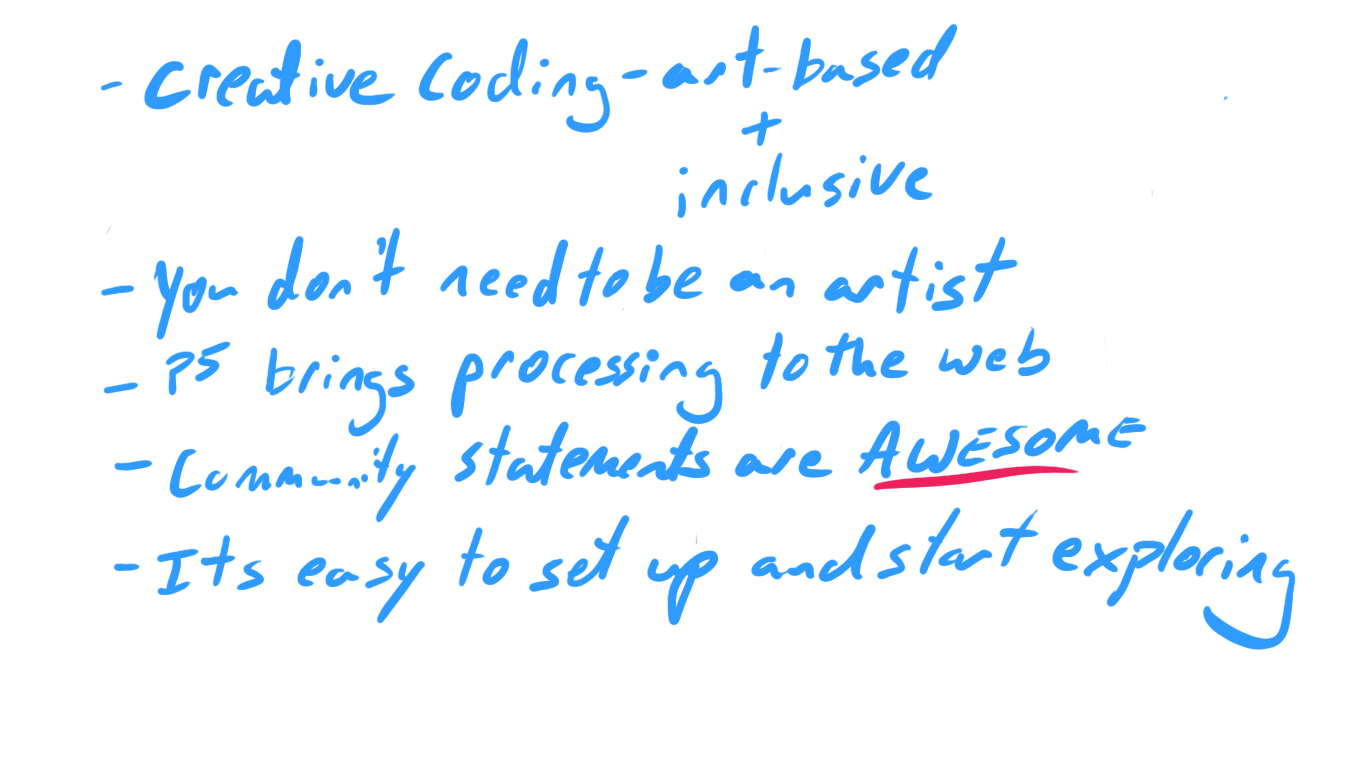 - Creative Coding - art-based
+
inclusive
- You don't need to be an artist
- P5 brings processing to the web
- Community statements are AWESOME
- Its easy to set up and start exploring